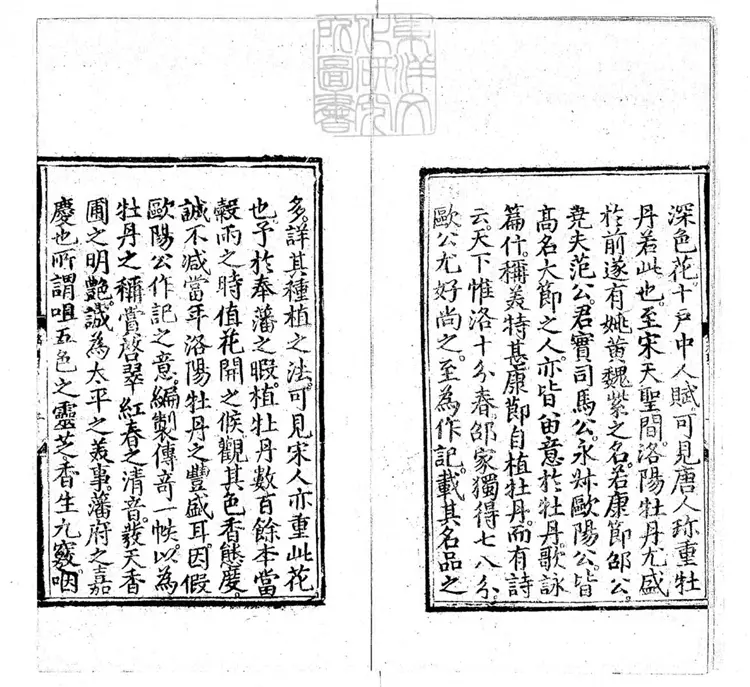 東洋文
化研究
所圖書
深色花。十戶中人賦。可見唐人珎重牡
丹若此也。至宋天聖間。洛陽牡丹尤盛
於前。遂有姚黄魏紫之名。若康節邵公。
堯夫范公。君實司馬公。永叔歐陽公。皆
髙名大節之人。亦皆畱意於牡丹。歌詠
篇什。稱羙特甚。康節自植牡丹。而有詩
云。天下惟洛十分春。邵家獨得七八分。
歐公尤好尚之。至為作記。載其名品之
多。詳其種植之法。可見宋人亦重此花
也。予於奉藩之暇。植牡丹數百餘本。當
穀雨之時。值花開之候。觀其色香態度。
誠不減當年洛陽牡丹之豐盛耳。因假
歐陽公作記之意。編製傳奇一帙。以為
牡丹之稱賞。啓翠紅春之清音。發天香
圃之明艷。誠為太平之羙事。藩府之嘉
慶也。所謂咀五色之靈芝。香生九竅。咽